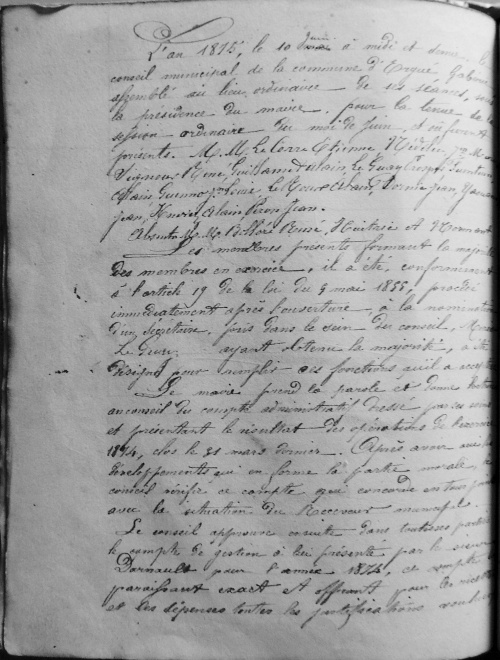 L'an 1875, le 10 Juin à midi et demie, le
conseil municipal de la commune d'Ergué Gabéric
assemblé au lieu ordinaire de ses séances, sous
la présidence du maire, pour la tenue de la
session ordinaire du moi de Juin, et où furent
présents. M. M. Le Corre Etienne
Vigneur René, Guillaume Alain, Le Guay Joseph
Alain, Guennou, Louis, Le Jean,
Jean, Alain Jean.
Absents M. M. et
Les membres présents formant la majorité
des membres en exercice, il a été, conformément
à l'article 19 de la loi du 5 mai 1855, procédé
immédiatement après l'ouverture, à la nomination
d'un secrétaire, pris dans le sein du conseil,
Le ayant obtenu la majorité, a été
désigné pour remplir ces fonctions qu'il a accepté
Le maire prend la parole et donne
au conseil du compte administratif dressé par ses
et présentant le résultat des opérations de l'exercice
1874, clos le 31 mars dernier. Après avoir
développements qui en forme la partie morale, le
conseil vérifie ce compte qui concorde en tous points
avec la situation du Receveur municipal.
Le conseil approuve ensuite dans toutes ses parties
le compte de gestion à lui présenté par le sieur
Darnault pour l'année 1874, ce compte
paraissant exact et offrant pour les recettes
et les dépenses toutes les justifications voulues